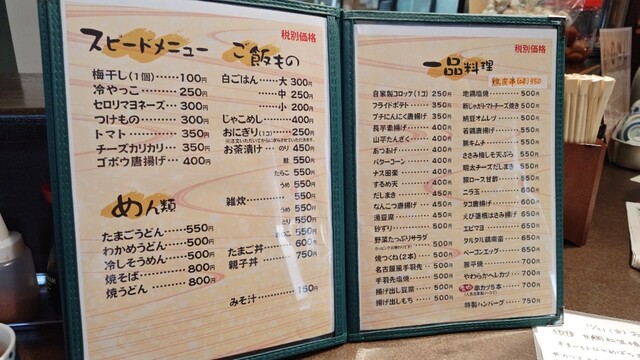 税別価格
スピードメニュー
梅干し(1個)……100円
冷やっこ……250円
セロリマヨネーズ…300円
つけもの……300円
トマト……350円
チーズカリカリ…350円
ゴボウ唐揚げ…400円
めん類
たまごうどん……550円
わかめうどん……500円
冷しそうめん……500円
焼そば……800円
焼うどん……800円
ご飯もの
白ごはん…大 300円
中 250円
小 200円
じゃこめし……400円
おにぎり(1コ)…250円
お茶漬け…のり 450円
鮭 550円
たらこ 550円
うめ 550円
雑炊……550円
うめ 550円
とり 550円
550円
たまご丼……600円
親子丼……750円
みそ汁……150円
税別価格
一品料理
自家製コロッケ(1コ) 250円
フライドポテト…350円
プチにんにく唐揚げ 350円
長芋素揚げ……400円
山芋たんざく…400円
あつあげ……400円
バターコーン…400円
ナス田楽……400円
するめ天……400円
だしまき……450円
なんこつ唐揚げ 450円
湯豆腐……450円
砂ずり……500円
野菜たっぷりサラダ
500円
焼つくね(2本) 500円
名古屋風手羽先 500円
手羽先塩焼…500円
揚げ出し豆腐…500円
揚げ出しもち…500円
地鶏塩焼……500円
新じゃがトマトチーズ焼き 500円
納豆オムレツ…500円
若鶏唐揚げ…500円
豚キムチ……500円
ささみ梅しそ天ぷら 550円
明太チーズだしまき 550円
豚ロース甘酢…550円
ニラ玉……600円
タコ唐揚げ…600円
えび蓮根はさみ揚げ 650円
エビマヨ……650円
タルタル鶏南蛮…650円
ベーコンエッグ…650円
豚平焼……700円
やわらかヘレカツ 700円
串カツ5本…700円
特製ハンバーグ 750円